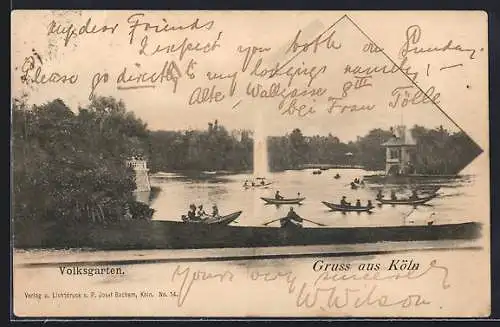 My dear Friends
I expect you both on Sunday.
Please go directly to my lodgings namely! –
Alte Wallgasse 8 III
bei Frau Tölle.
Volksgarten.
Gruss aus Köln
Yours very sincerely
W. Wilson.
Verlag u. Lichtdruck v. P. Josef Bachem, Köln. No. 14.